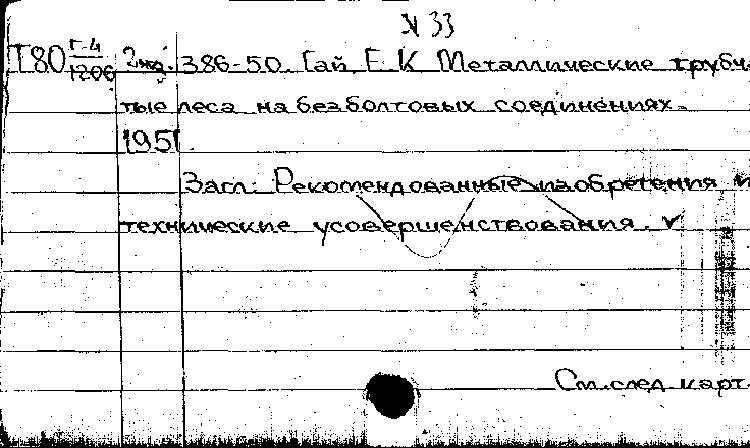 N 33
Т80 Г-4/1206 2 экз. 386-50. Гай, Е. К. Металлические трубча
тые леса на безболтовых соединениях.
1951.
Загл: Рекомендованные изобретения и
технические усовершенствования. ✓
См. след. карт.